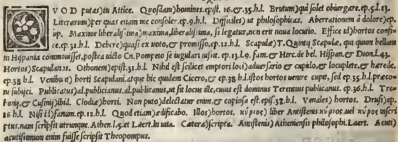 QVOD putas) in Attica. Quosdam) homines. epist. 16. et 35. h.l. Brutum) quid solet obiurgare. ep. 52. 13.
Literarum) per quas etiam me consoler. ep. 9. h.l. Difficiles) ut philosophicas. Aberrationem à dolore) ep.
Maxime liberali) una) maxima, liberali una, si legatur, non erit noua locutio. Effice id) hortos confi-
ce. ep. 12. h.l. Debere) quasi ex uoto, et promisso. ep. 12. h.l. Scapulæ) T. Quintij Scapulæ, qui quum bellum
in Hispania commouisset, post ea uicto Cn. Pompeio se iugulari iussit. ep. 13. l. 9. fam. et Herc. de bel. Hispan. et Dion. l. 43.
Hortos) Scapulanos. Othonem) epist. 31. h.l. Nihil est
ep. 38. h.l. Venibunt) horti Scapulani, atque hic quidem Cicero,
tu subijci. Publicatus) al. publicanus, al. publicatus, ut sit locus ille, cuius est dominus Terentius publicus. ep. 36. h.l. Tre-
bonij, et Cusinij) ibid. Clodiæ) horti. Non puto) delectatur enim, et copiosa est. epist. 52. h.l. Venales) hortos. Drusi) ep.
16. h.l. Nisi si) fanum. ep. 12. h.l. Quod etiam) ædificatio. Illos) hortos. κῦρος) liber Antistenis κῦρος,
ptus, nam scripsit utrunque. Athen. l. 5. et Laert. in uita. Cætera) scripta. Antistenis) Atheniensis philosophi. Laert. Acuti)
acutissimum enim fuisse scripsit Theopompus.